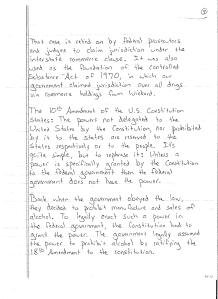 That case is relied on by federal prosecutors
and judges to claim jurisdiction under the
interstate commerce clause. It was also
used as the foundation of the Controlled
Substance Act of 1970, in which our
government claimed jurisdiction over all drugs
via commerce holdings from Wickard.
The 10th Amendment of the U.S. Constitution
States: The powers not delegated to the
United States by the Constitution, nor prohibited
by it to the states are reserved to the
States respectively or to the people. It's
quite simple, but to rephrase it: Unless a
power is specifically granted by the Constitution
to the federal government then the federal
government does not have the power.
Back when the government obeyed the law,
they decided to prohibit manufacture and sales of
alcohol. To legally enact such a power in
the federal government, the Constitution had to
grant the power. The government legally assumed
the power to prohibit alcohol by ratifying the
18th Amendment to the constitution.